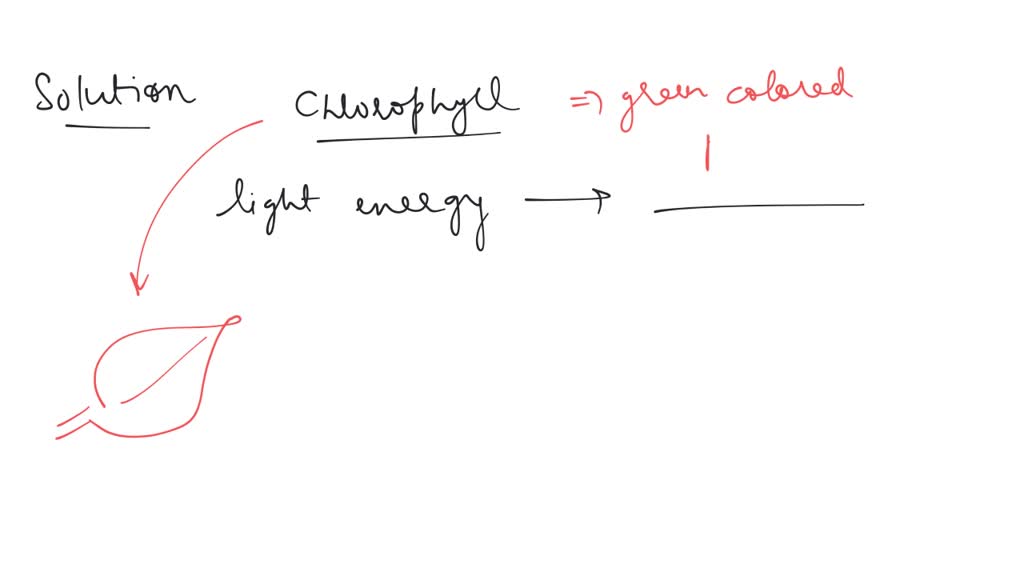 Solution
Chlorophyll ⇒ green colored
light energy →